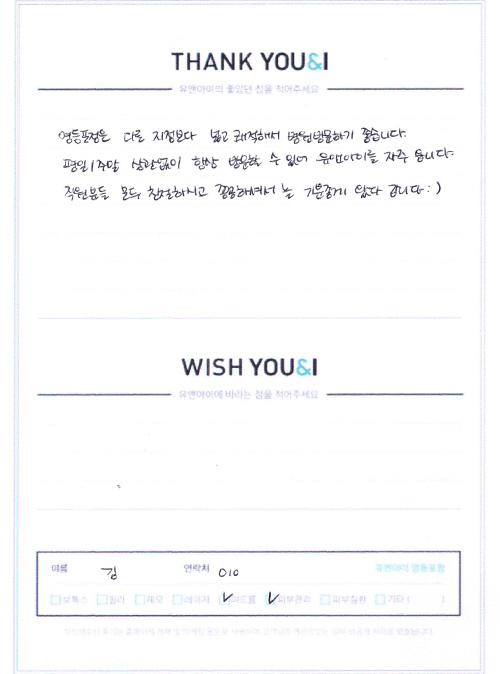 THANK YOU&I
유앤아이의 좋았던 점을 적어주세요
영등포점은 다른 지점보다 넓고 쾌적해서 병원방문하기 좋습니다.
평일/주말 상관없이 항상 방문할 수 있어 유앤아이를 자주 옵니다.
직원분들 모두 친절하시고 꼼꼼하셔서 늘 기분좋게 왔다 갑니다 : )
WISH YOU&I
유앤아이에 바라는 점을 적어주세요
이름 김 연락처 010 유앤아이 영등포점
보톡스 필러 제모 레이저 여드름 피부관리 피부질환 기타 ( )